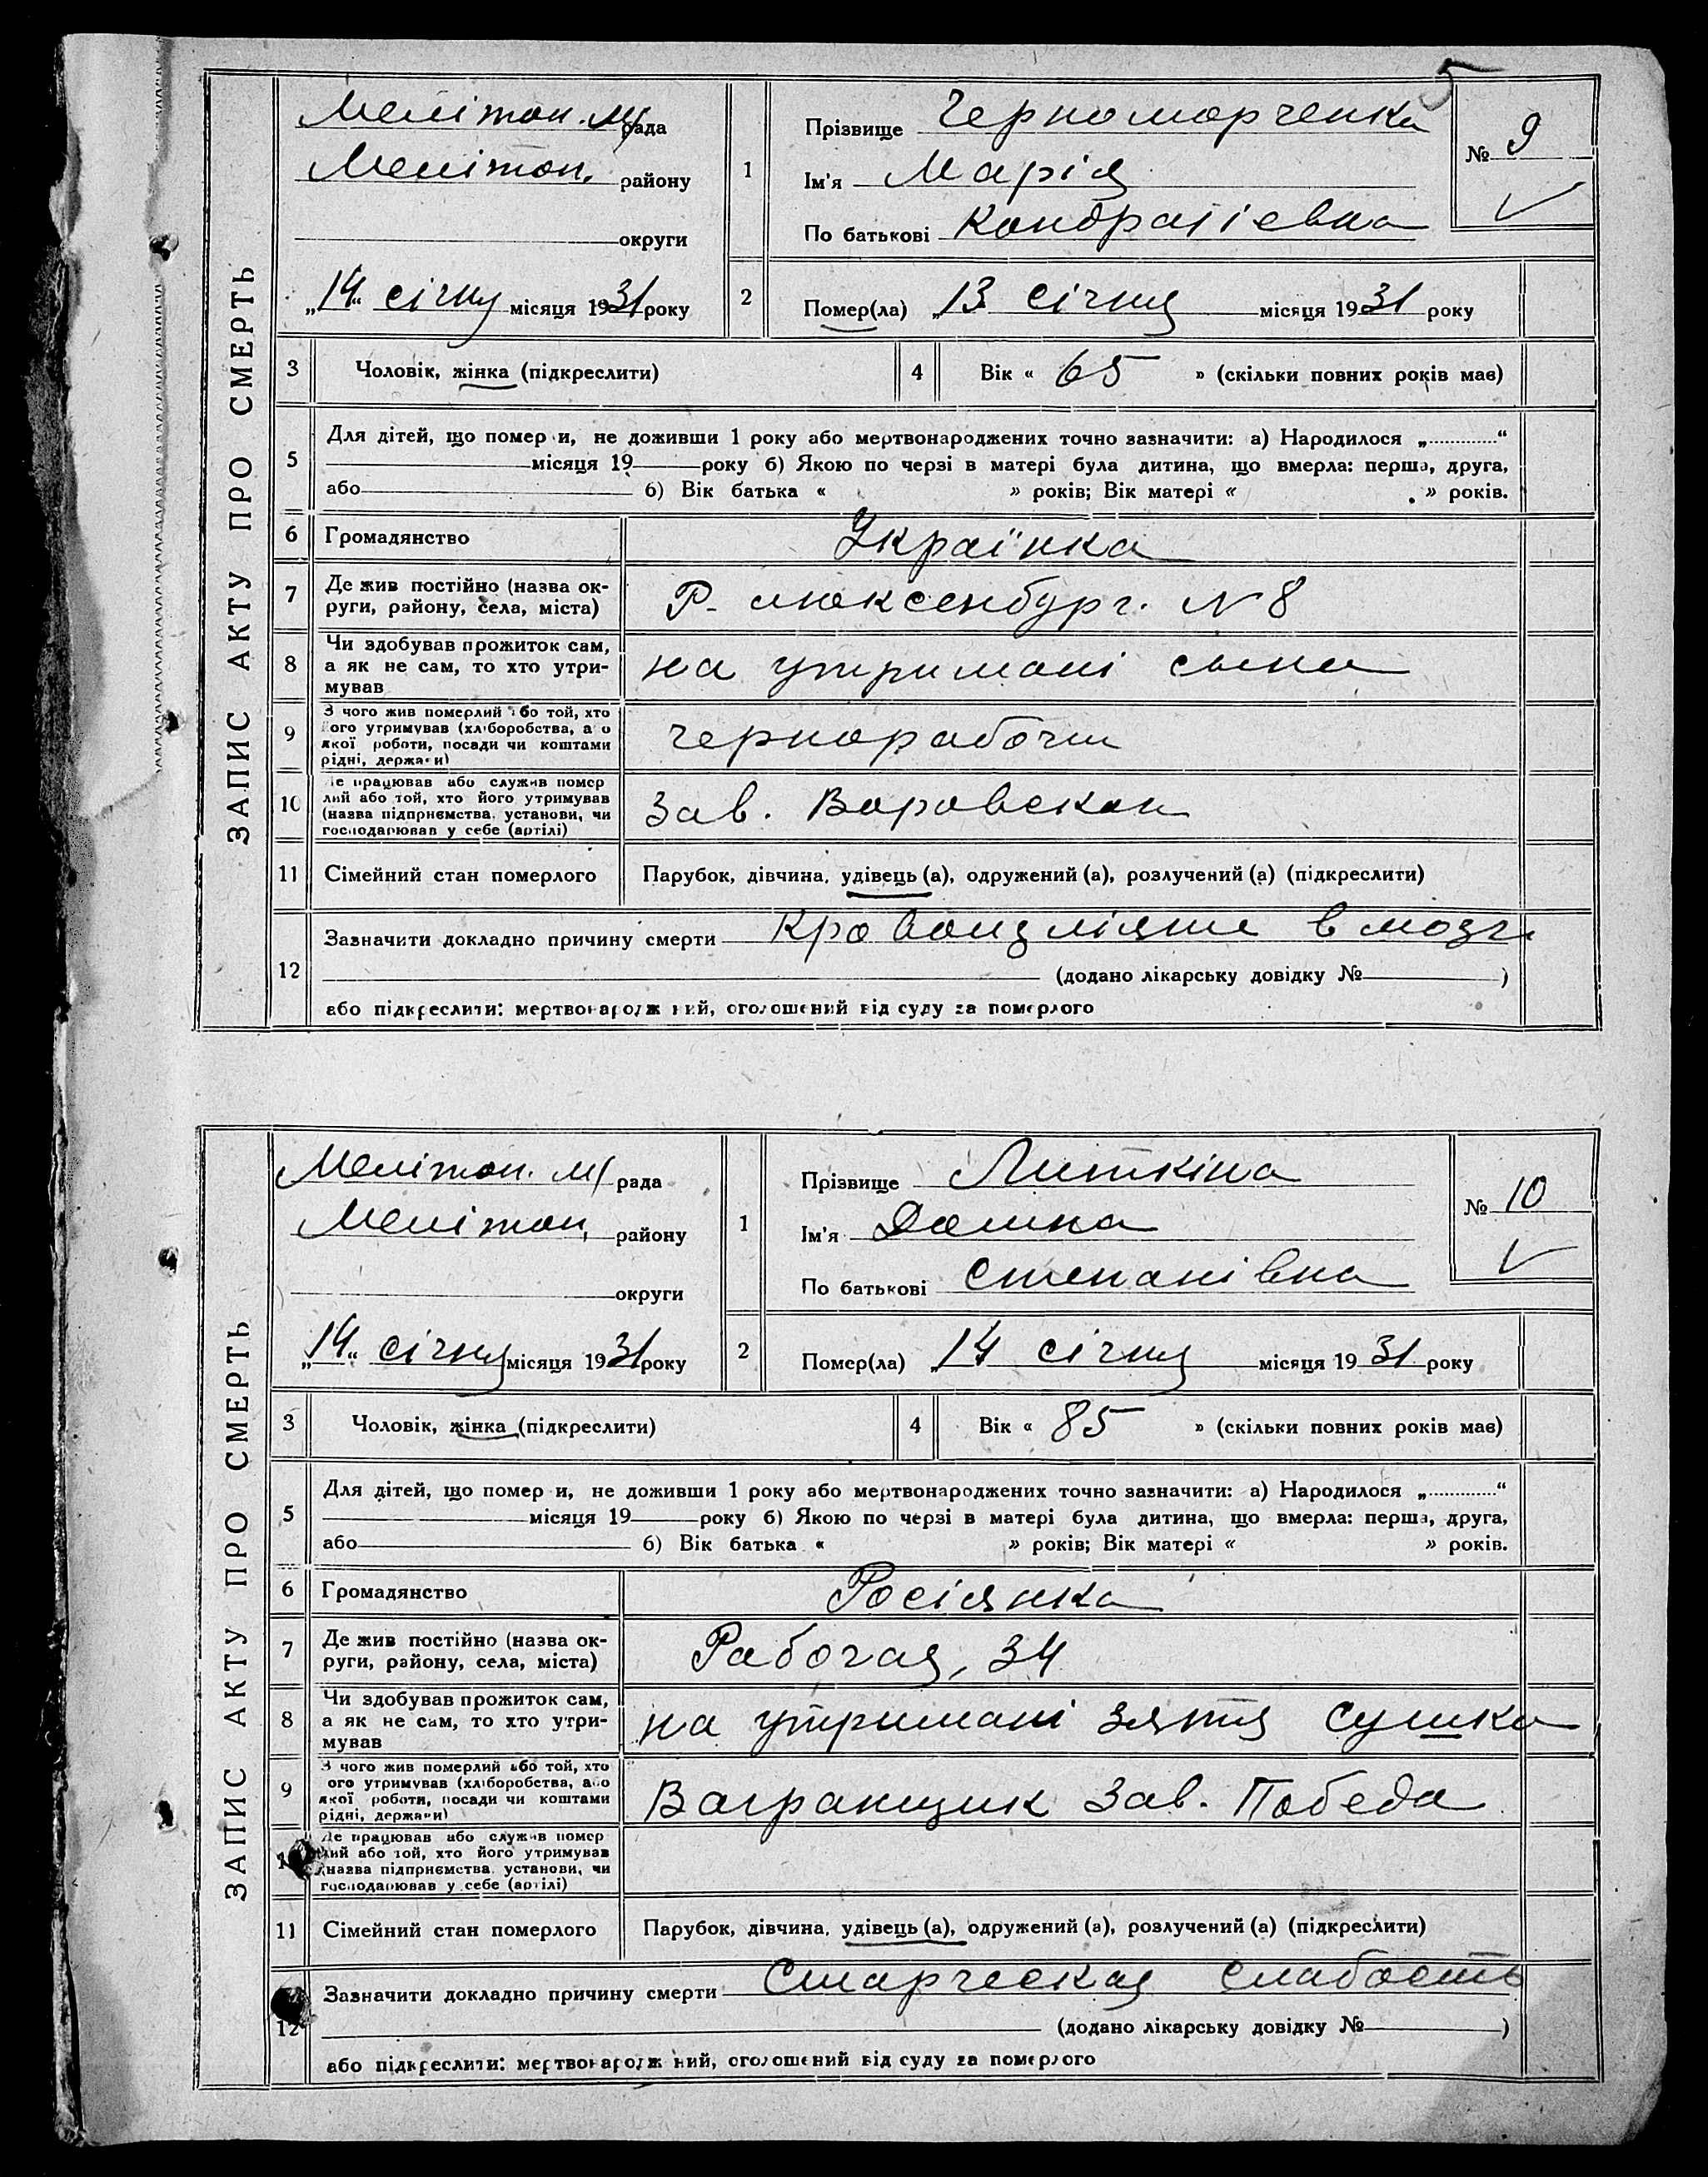 5
ЗАПИС АКТУ ПРО СМЕРТЬ
Мелітоп. м/рада
Мелітоп. району
округи
„14“ січня місяця 1931 року
1
Прізвище Черноморченко
Ім'я Марія
По батькові Кондратіевна
№ 9
2
Помер(ла) „13 січня місяця 1931 року
3
Чоловік, жінка (підкреслити)
4
Вік « 65 » (скільки повних років має)
5
Для дітей, що помер и, не доживши 1 року або мертвонароджених точно зазначити: а) Народилося „ “
місяця 19 року б) Якою по черзі в матері була дитина, що вмерла: перша, друга,
або б) Вік батька « » років; Вік матері « » років.
6
Громадянство
Українка
7
Де жив постійно (назва ок-
руги, району, села, міста)
Р. Люксенбург. N 8
8
Чи здобував прожиток сам,
а як не сам, то хто утри-
мував
на утримані сына
9
З чого жив померлий або той, хто
його утримував (хліборобства, або
якої роботи, посади чи коштами
рідні, держави)
чернорабочи
10
Де працював або служив помер
лий або той, хто його утримував
(назва підприємства, установи, чи
господарював у себе (артілі)
Зав. Воровском
11
Сімейний стан померлого
Парубок, дівчина, удівець (а), одружений (а), розлучений (а) (підкреслити)
12
Зазначити докладно причину смерти Кровоизліяние в мозг
(додано лікарську довідку № )
або підкреслити: мертвонародж ний, оголошений від суду за померлого
ЗАПИС АКТУ ПРО СМЕРТЬ
Мелітоп. м/рада
Мелітоп. району
округи
„14“ січня місяця 1931 року
1
Прізвище Литкіна
Ім'я Домна
По батькові Степанівна
№ 10
2
Помер(ла) „14 січня місяця 1931 року
3
Чоловік, жінка (підкреслити)
4
Вік « 85 » (скільки повних років має)
5
Для дітей, що помер и, не доживши 1 року або мертвонароджених точно зазначити: а) Народилося „ “
місяця 19 року б) Якою по черзі в матері була дитина, що вмерла: перша, друга,
або б) Вік батька « » років; Вік матері « » років.
6
Громадянство
Росіянка
7
Де жив постійно (назва ок-
руги, району, села, міста)
Рабочая, 34
8
Чи здобував прожиток сам,
а як не сам, то хто утри-
мував
на утримані зятя Сушко
9
З чого жив померлий або той, хто
його утримував (хліборобства, або
якої роботи, посади чи коштами
рідні, держави)
Вагранщик Зав. Победа
Де працював або служив помер
лий або той, хто його утримував
(назва підприємства, установи, чи
господарював у себе (артілі)
11
Сімейний стан померлого
Парубок, дівчина, удівець (а), одружений (а), розлучений (а) (підкреслити)
12
Зазначити докладно причину смерти Старческая слабость
(додано лікарську довідку № )
або підкреслити: мертвонародж ний, оголошений від суду за померлого